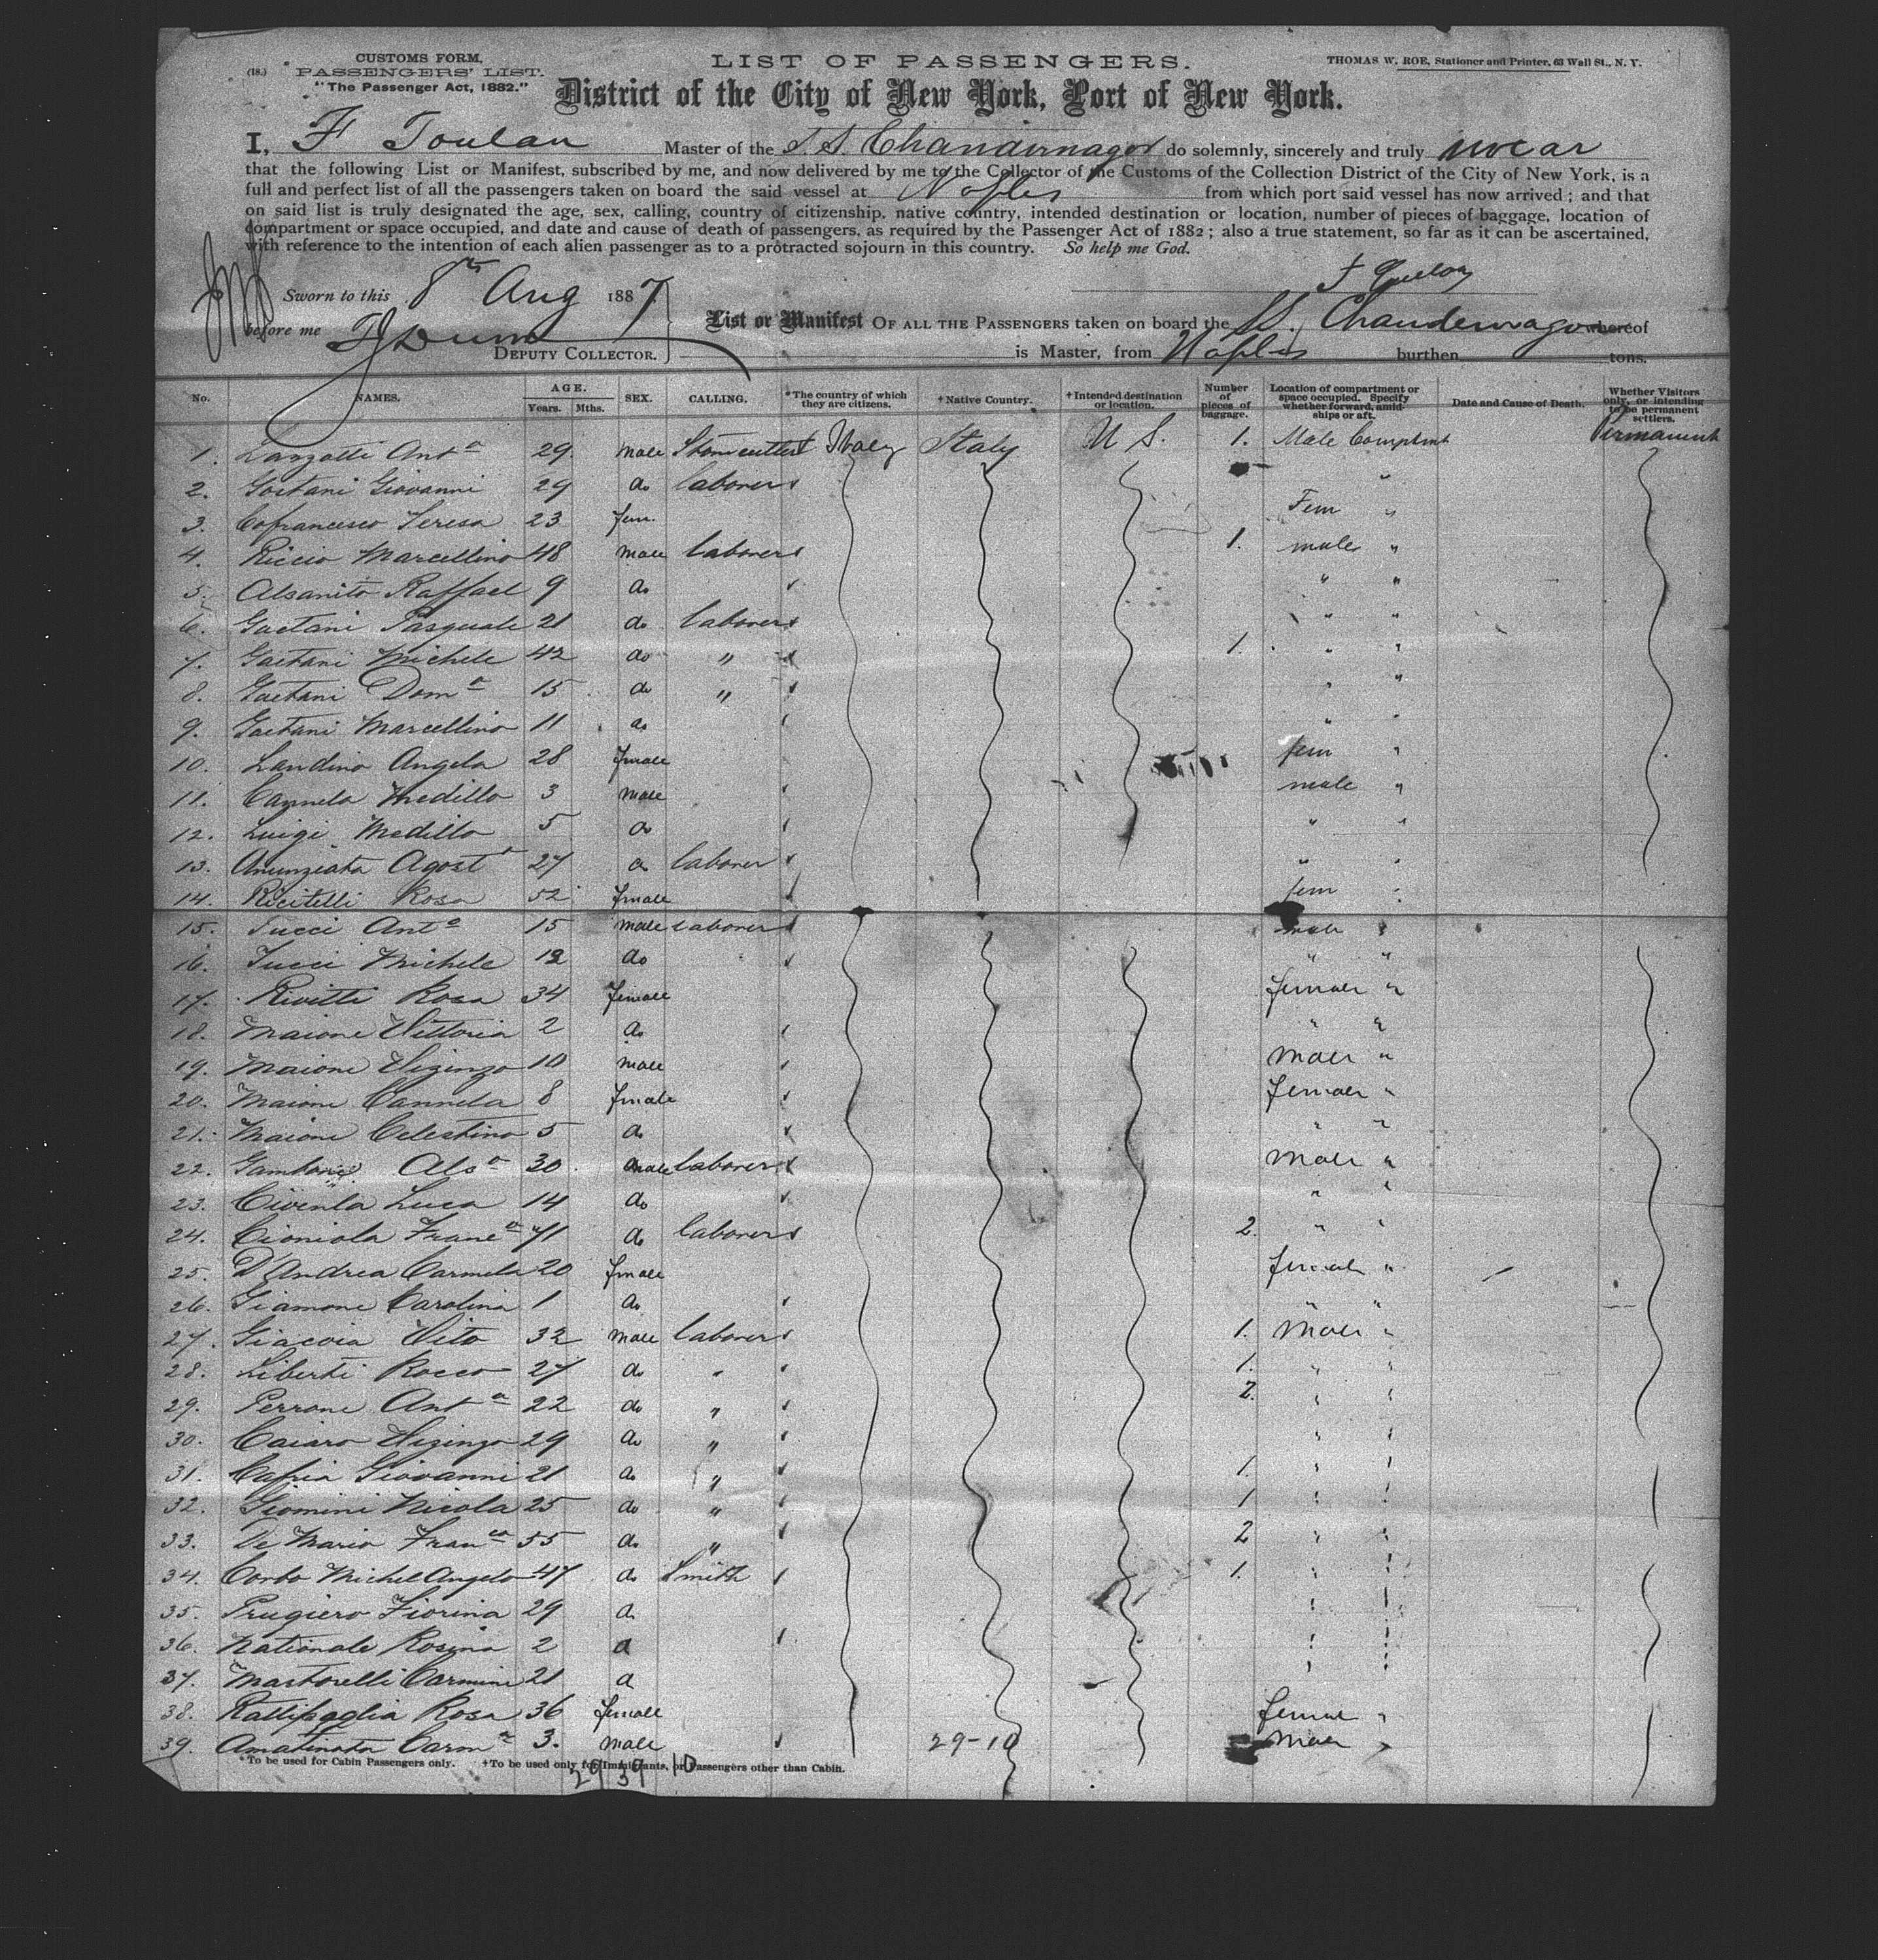 CUSTOMS FORM,
(18.) PASSENGERS' LIST.
"The Passenger Act, 1882."
LIST OF PASSENGERS.
THOMAS W. ROE, Stationer and Printer, 63 Wall St., N. Y.
District of the City of New York, Port of New York.
I, F Toulan Master of the S.S. Chandernagor do solemnly, sincerely and truly swear
that the following List or Manifest, subscribed by me, and now delivered by me to the Collector of the Customs of the Collection District of the City of New York, is a
full and perfect list of all the passengers taken on board the said vessel at Naples from which port said vessel has now arrived; and that
on said list is truly designated the age, sex, calling, country of citizenship, native country, intended destination or location, number of pieces of baggage, location of
compartment or space occupied, and date and cause of death of passengers, as required by the Passenger Act of 1882; also a true statement, so far as it can be ascertained,
with reference to the intention of each alien passenger as to a protracted sojourn in this country. So help me God.
Sworn to this 8th Aug 1887
before me
DEPUTY COLLECTOR.
List or Manifest OF ALL THE PASSENGERS taken on board the SS. Chandernagor whereof
is Master, from Naples burthen tons.
No. NAMES. AGE. Years. Mths. SEX. CALLING. *The country of which they are citizens. †Native Country. †Intended destination or location. Number of pieces of baggage. Location of compartment or space occupied. Specify whether forward, amidships or aft. Date and Cause of Death. Whether Visitors only, or intending to be permanent settlers.
1. Lanzotti Anto 29 male Stonecutter Italy Italy U S. 1. Male Comptmt Permanent
2. Goetani Giovanni 29 do laborer "
3. Cofrancesco Teresa 23 fem. Fem "
4. Riccio Marcellino 48 male laborer 1. male "
5. Alsanito Raffael 9 do " "
6. Gaetani Pasquale 21 do laborer " "
7. Gaetani Michele 42 do " 1. " "
8. Gaetani Domo 15 do " " "
9. Gaetani Marcellino 11 do " "
10. Landino Angela 28 female fem "
11. Carmela Medillo 3 male male "
12. Luigi Medillo 5 do " "
13. Anunziata Agost 27 do laborer " "
14. Ricitelli Rosa 52 female fem "
15. Tucci Anto 15 male laborer male "
16. Tucci Michele 12 do " "
17. Rivitti Rosa 34 female female "
18. Maione Vittoria 2 do " "
19. Maione Vizinzo 10 male male "
20. Maione Carmela 8 female female "
21. Maione Celestina 5 do " "
22. Also 30 male laborer male "
23. Luca 14 do " "
24. Cioniola Franco 41 do laborer 2. " "
25. D'Andrea Carmela 20 female female "
26. Giamone Carolina 1 do " "
27. Giacoia Vito 32 male laborer 1. male "
28. Liberti Rocco 27 do " 1. " "
29. Perrone Anto 22 do " 2. " "
30. Caiaro Vizinzo 29 do " " "
31. Cafria Giovanni 21 do " 1. " "
32. Giomini Nicola 25 do " 1 " "
33. De Mario Franco 55 do " 2 " "
34. Corbo Michel Angelo 47 do Smith 1. " "
35. Prugiero Fiorina 29 do " "
36. Nationale Rosina 2 do " "
37. Martorelli Carmine 21 do " "
38. Rattipaglia Rosa 36 female female "
39. Carmo 3. male 29-10 male "
*To be used for Cabin Passengers only. †To be used only for Immigrants, or Passengers other than Cabin.
29 39 10